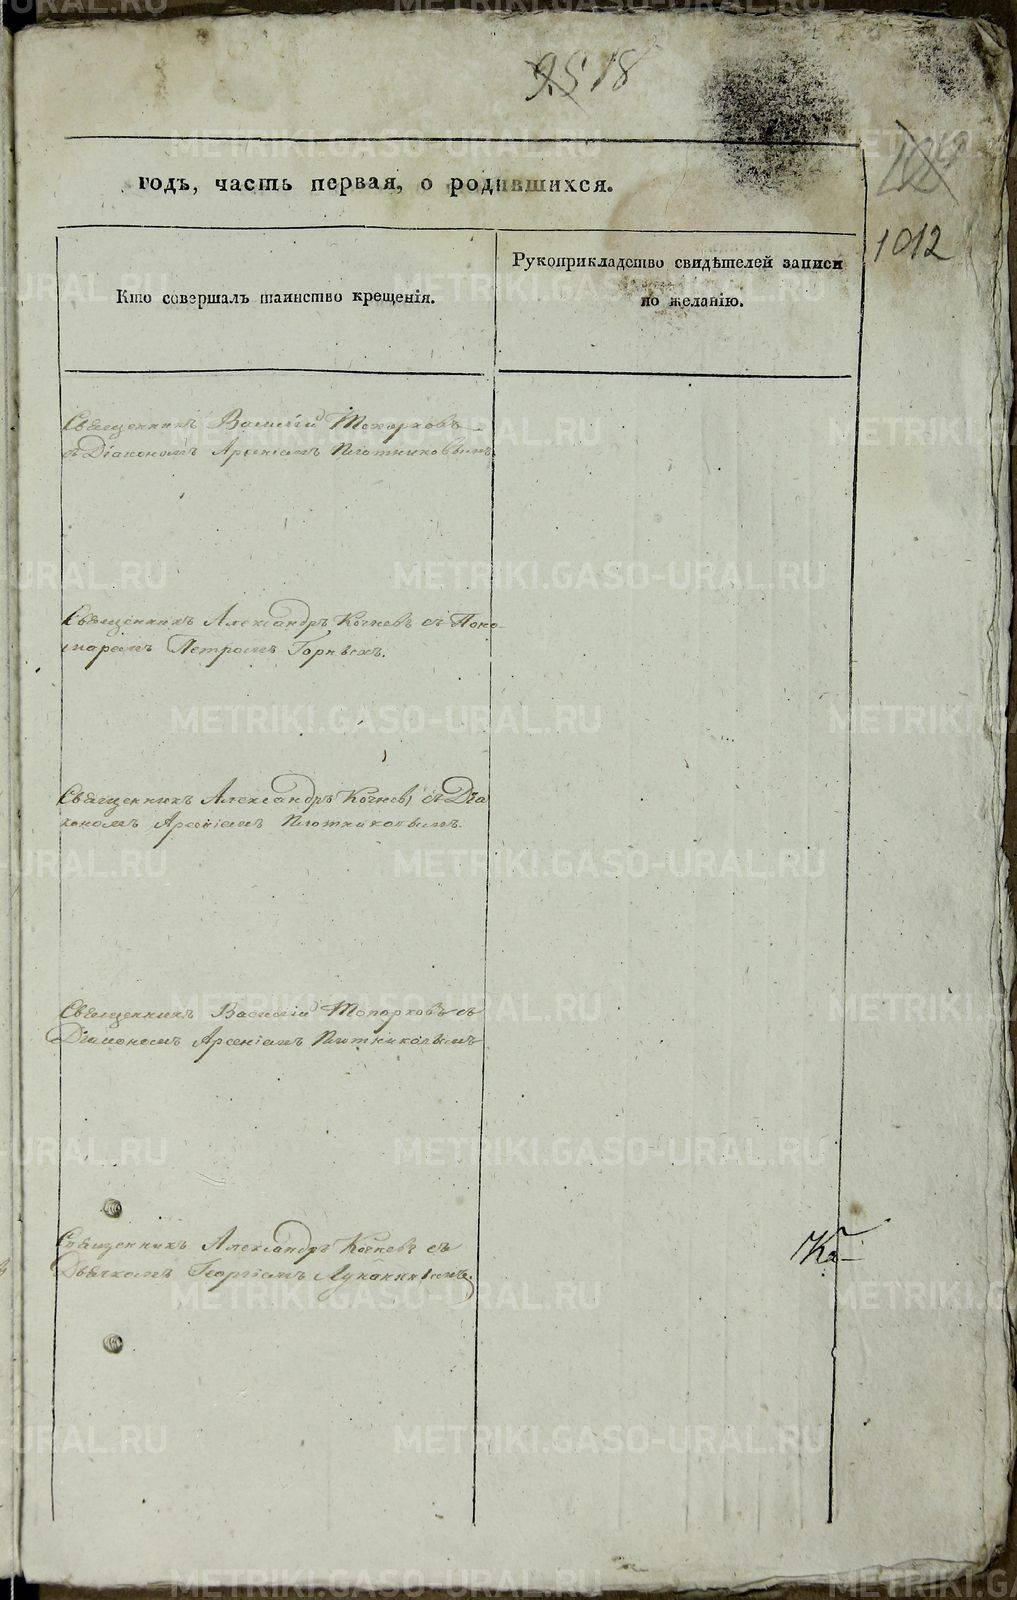 95 18
102
годъ, часть первая, о родившихся.
1012
Кто совершалъ таинство крещенія.
Рукоприкладство свидѣтелей записи
по желанію.
Священникъ Василій Топорковъ
съ Діакономъ Арсеніемъ Плотниковымъ
Священникъ Александръ Кочневъ съ Поно-
маремъ Петромъ Горныхъ.
Священникъ Александръ Кочневъ съ Діа
кономъ Арсеніемъ Плотниковымъ.
Священникъ Василій Топорковъ съ
Діакономъ Арсеніемъ Плотниковымъ
Священникъ Александръ Кочневъ съ
Дьячкомъ Георгіемъ
Ка-
METRIKI.GASO-URAL.RU